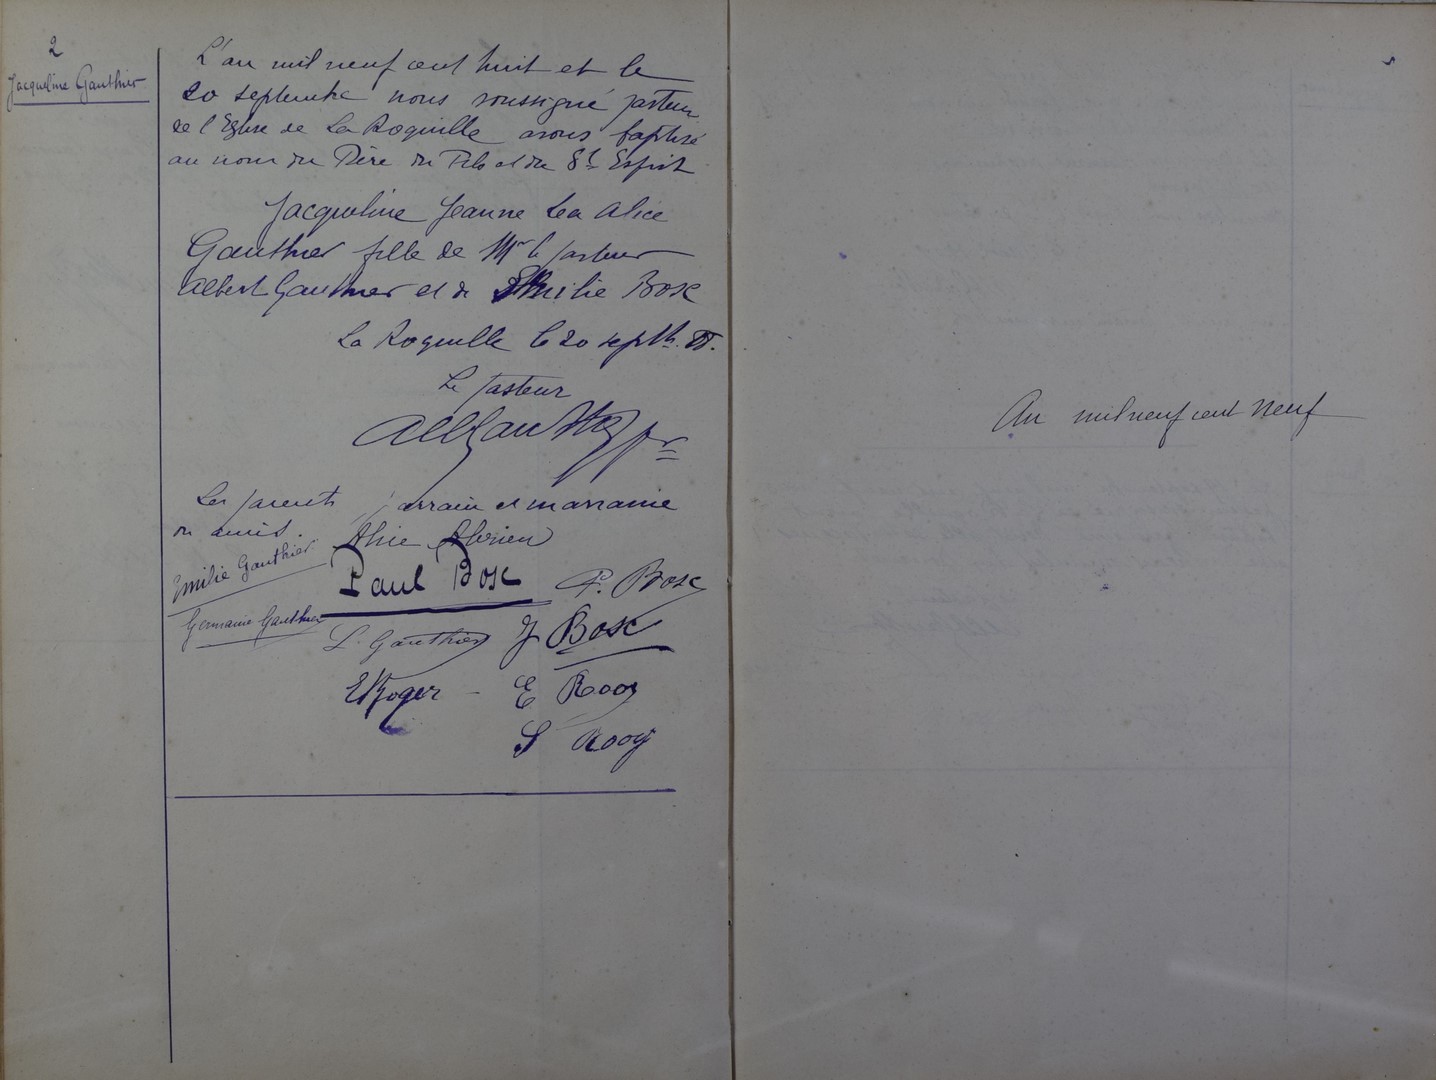 2
Jacqueline Gauthier
L'an mil neuf cent huit et le
20 septembre nous soussigné pasteur
de l'Eglise de La Roquille avons baptisé
au nom du Père du Fils et du St Esprit
Jacqueline Jeanne Lea Alice
Gauthier fille de Mr le pasteur
Albert Gauthier et de Emilie Bosc
La Roquille le 20 septb.
Le pasteur
Alb Gauthier pr
Les parents parrain et marraine
ou amis. Alice
Emilie Gauthier Paul Bosc P. Bosc
Germaine Gauthier L. Gauthier J Bosc
E Roger E Rooy
S Rooy
An mil neuf cent neuf